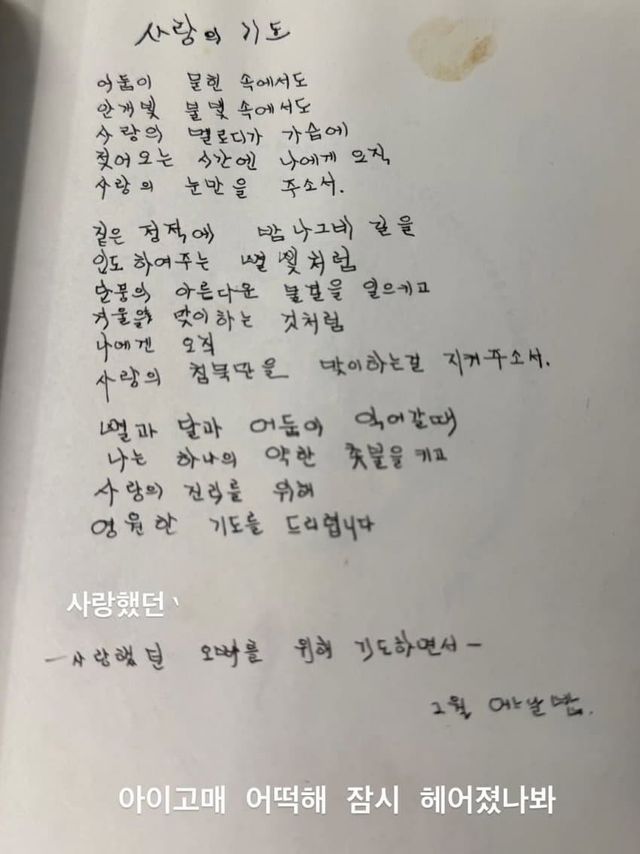 사랑의 기도
어둠이 묻힌 속에서도
안개빛 불빛 속에서도
사랑의 멜로디가 가슴에
젖어오는 시간엔 나에게 오직
사랑의 눈만을 주소서.
짙은 정적에 밤 나그네 길을
인도하여주는 별빛처럼
단풍의 아름다운 물결을 일으키고
겨울을 맞이하는 것처럼
나에겐 오직
사랑의 침묵만을 맞이하는걸 지켜주소서.
별과 달과 어둠이 익어갈때
나는 하나의 약한 촛불을 키고
사랑의 진리를 위해
영원한 기도를 드리렵니다
사랑했던
- 사랑했던 오빠를 위해 기도하면서 -
2월 어느날 밤.
아이고매 어떡해 잠시 헤어졌나봐